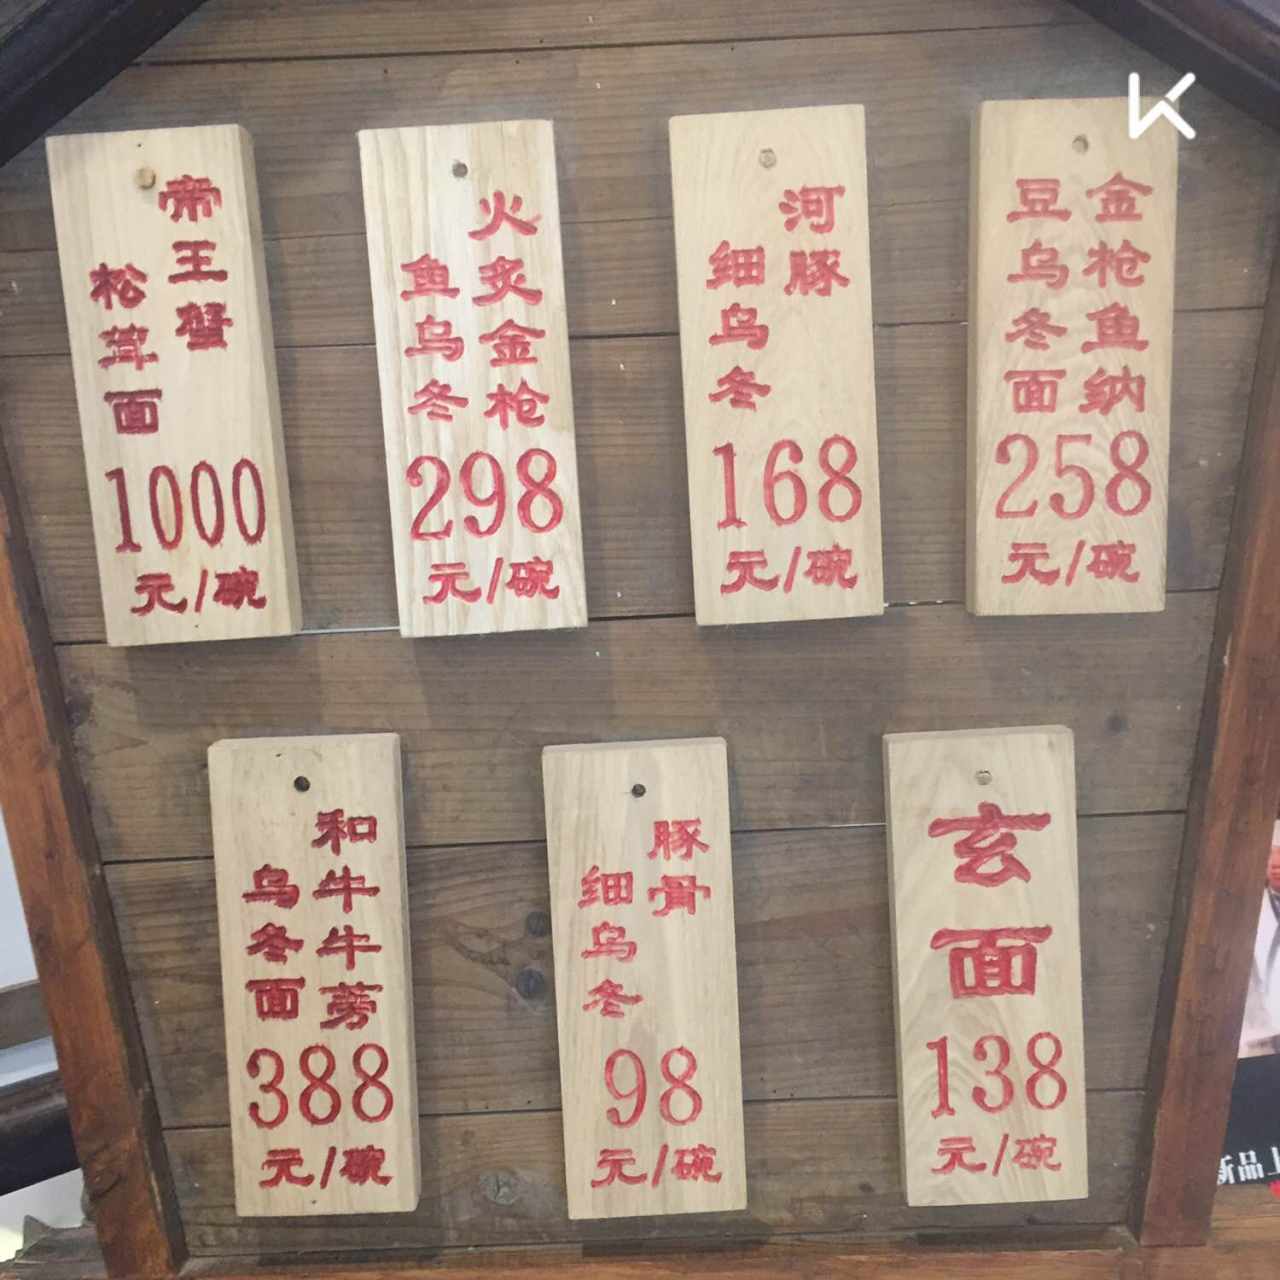 帝王蟹
松茸面
1000
元/碗
火炙金枪
鱼乌冬
298
元/碗
河豚
细乌冬
168
元/碗
金枪鱼纳
豆乌冬面
258
元/碗
和牛牛蒡
乌冬面
388
元/碗
豚骨
细乌冬
98
元/碗
玄面
138
元/碗
新品上